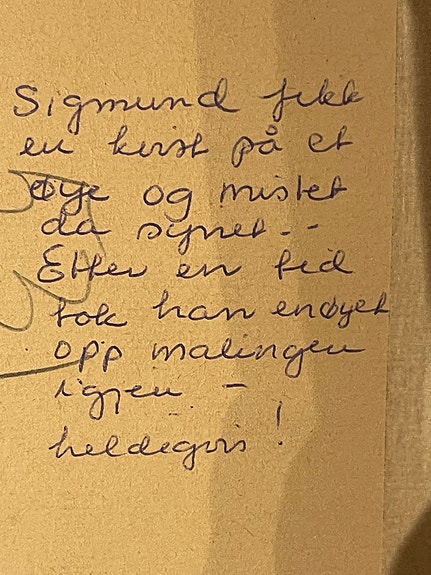 Sigmund fikk
en kvist på et
øye og mistet
da synet --
Etter en tid
tok han enøyet
opp malingen
igjen -
heldigvis!